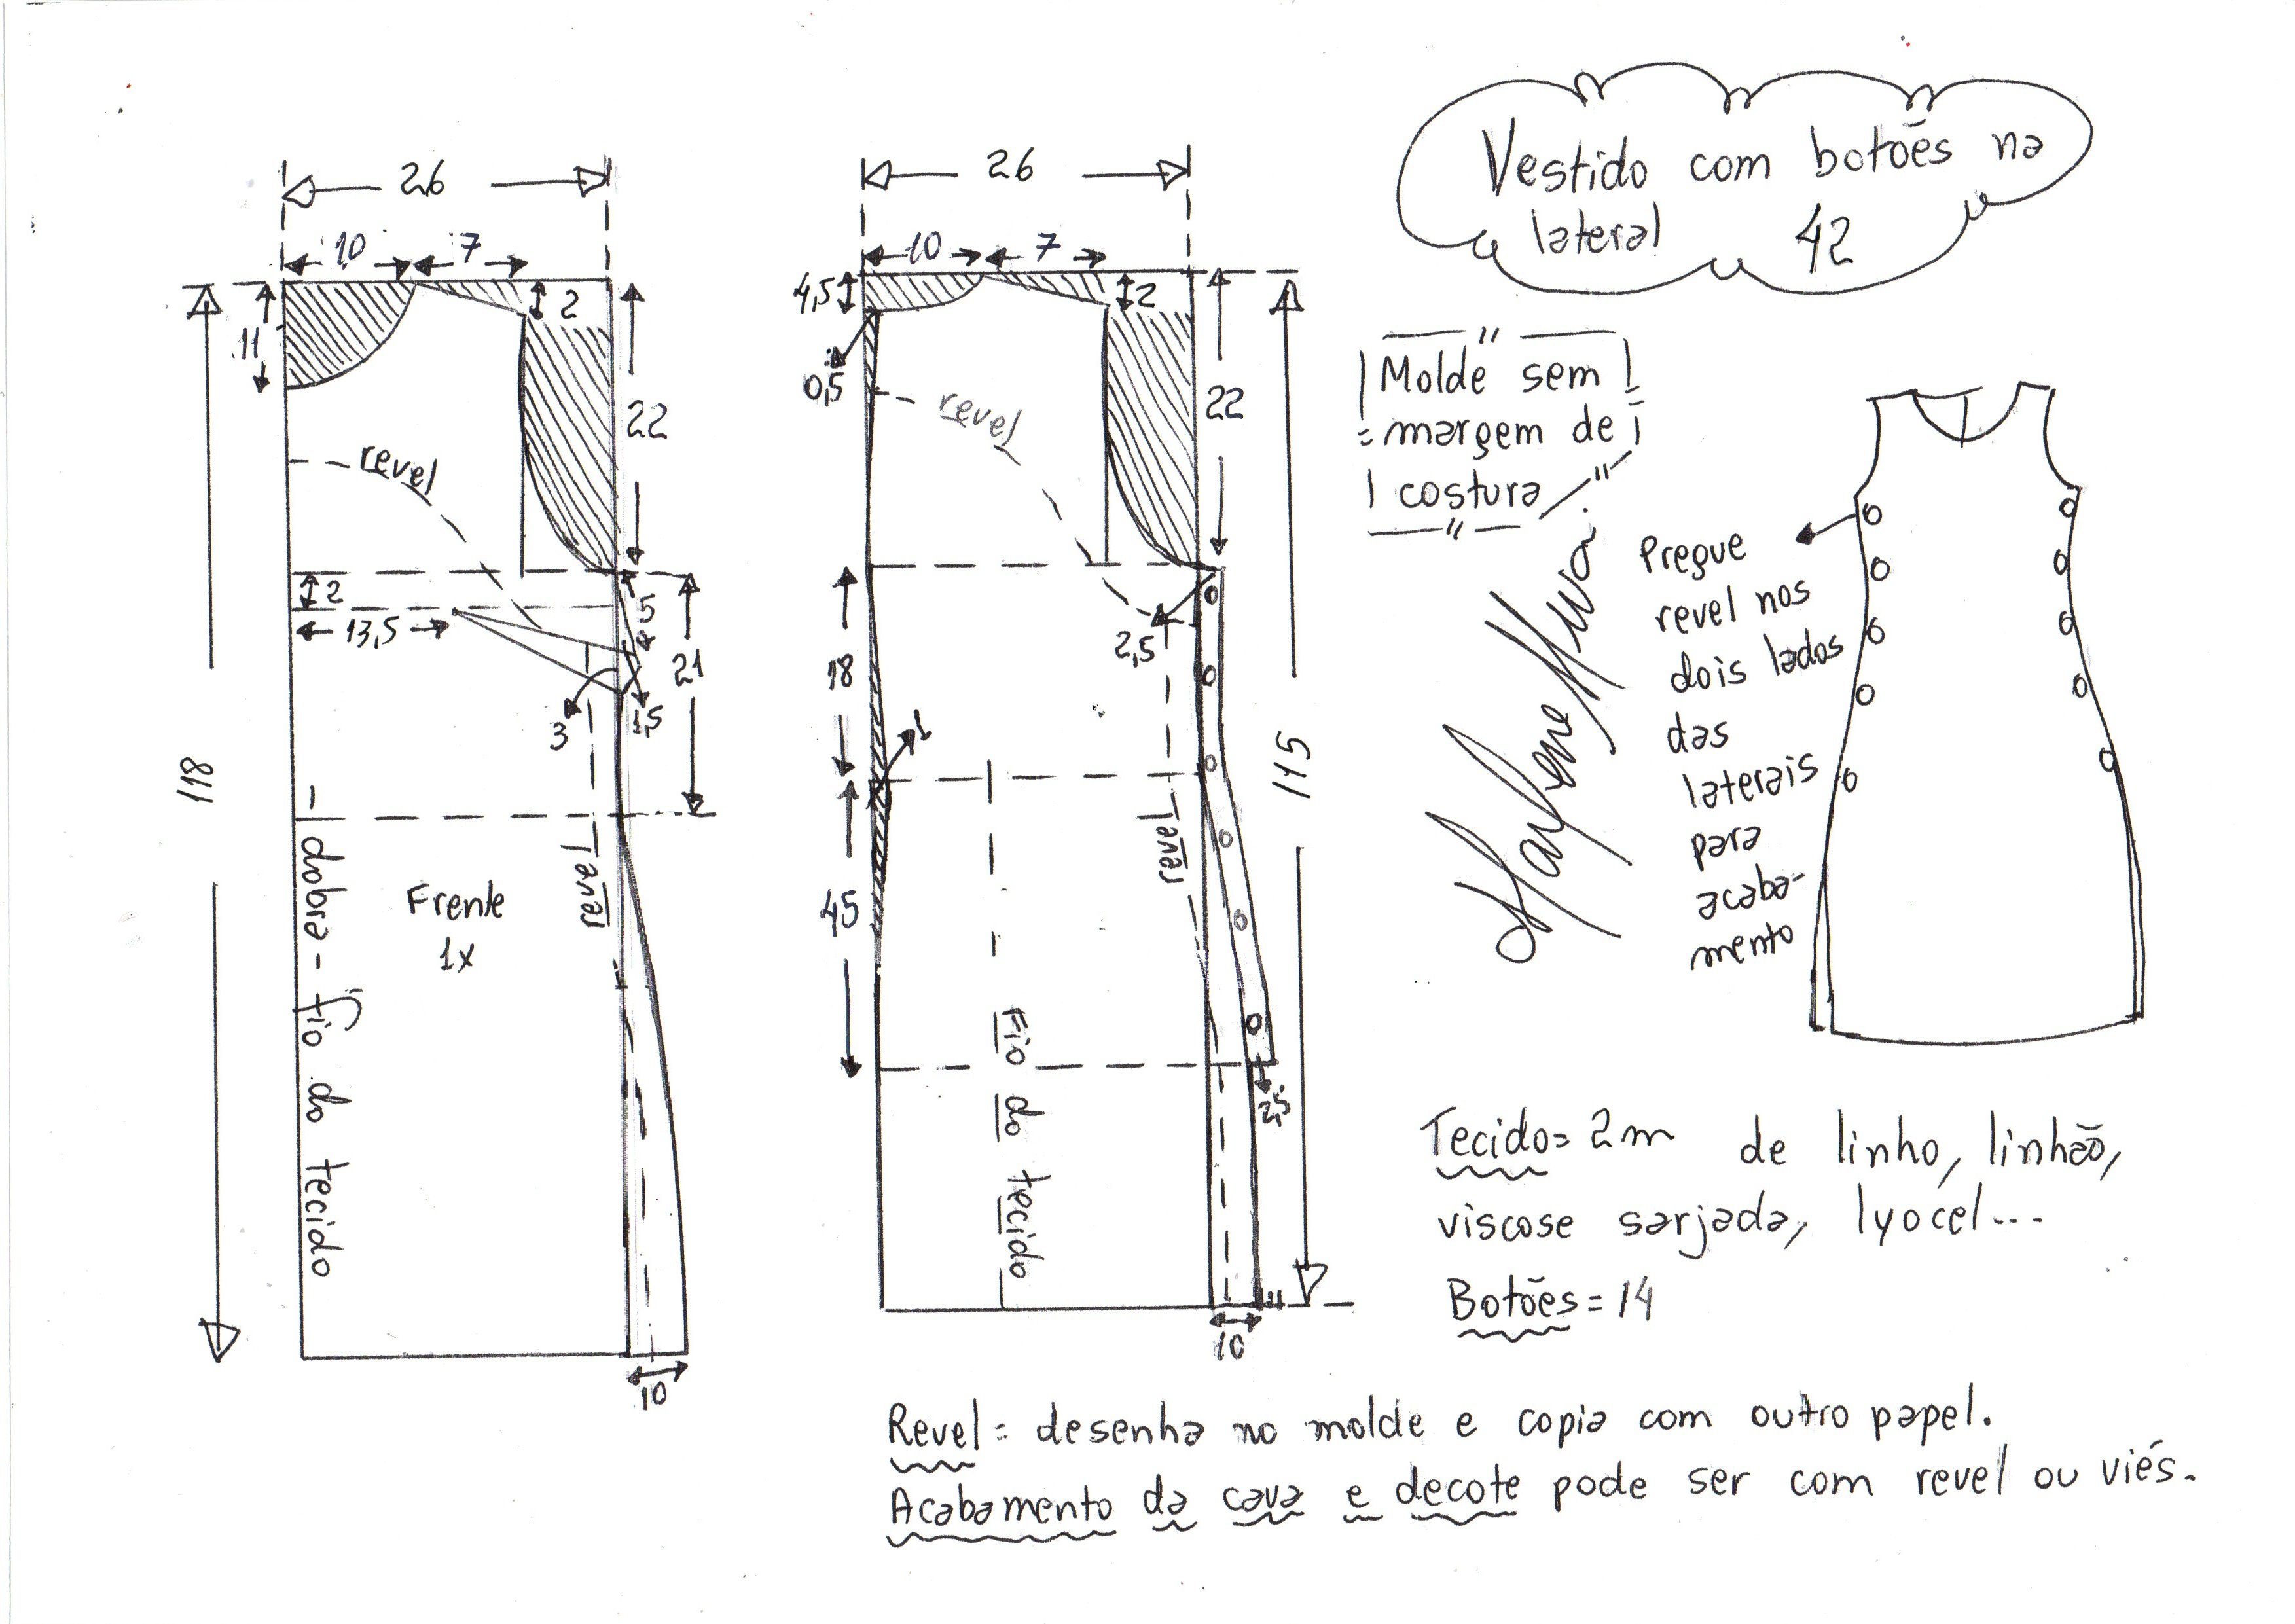 Vestido com botões na
lateral 42
26
10
7
11
2
22
revel
2
13,5
5
4
21
3
1,5
118
dobra - fio do tecido
Frente
1x
revel
10
26
10
7
4,5
2
0,5
revel
22
2,5
18
1
115
revel
45
Fio do tecido
2,5
10
Molde sem
margem de
costura
Marlene Mukai
Pregue
revel nos
dois lados
das
laterais
para
acaba-
mento
Tecido= 2m de linho, linhão,
viscose sarjada, lyocel...
Botões = 14
Revel = desenha no molde e copia com outro papel.
Acabamento da cava e decote pode ser com revel ou viés.